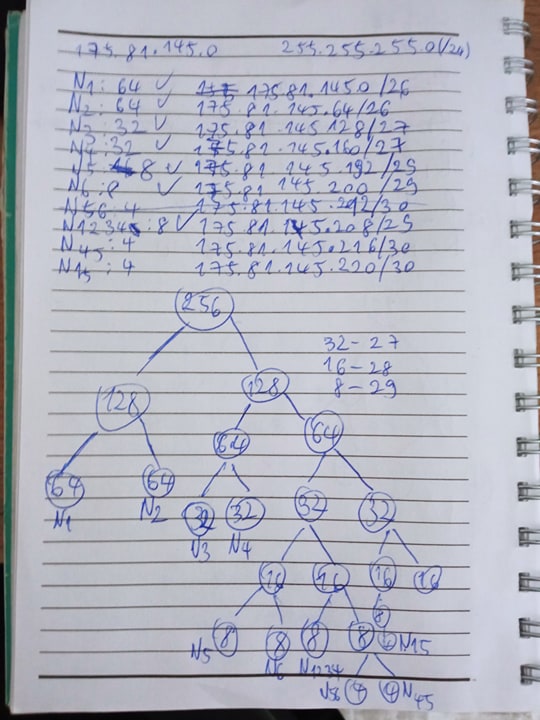 175.81.145.0 255.255.255.0(/24)
N1: 64 ✓ 175.81.145.0/26
N2: 64 ✓ 175.81.145.64/26
N3: 32 ✓ 175.81.145.128/27
N4: 32 ✓ 175.81.145.160/27
N5: 8 ✓ 175.81.145.192/29
N6: 8 ✓ 175.81.145.200/29
N56: 4 175.81.145.212/30
N1234: 8 ✓ 175.81.145.208/29
N45: 4 175.81.145.216/30
N15: 4 175.81.145.220/30
256
32-27
16-28
8-29
128 128
64 64
64 64
N1 N2
32 32 32 32
N3 N4
16 16 16 16
8
8 8 8 8 N15
N5 N6 N1234
N56 4 4 N45